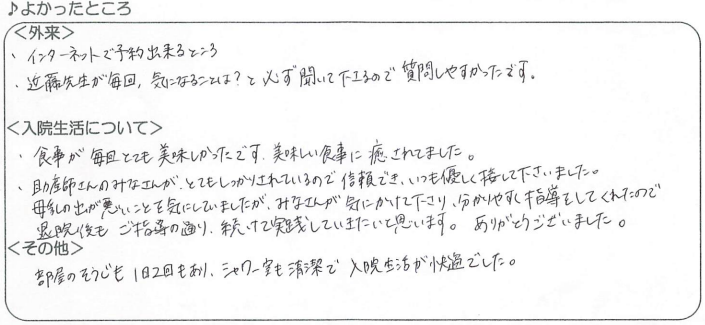 ♪よかったところ
<外来>
・インターネットで予約出来るところ
・近藤先生が毎回、気になることは？と必ず聞いて下さるので質問しやすかったです。
<入院生活について>
・食事が毎回とても美味しかったです。美味しい食事に癒されてました。
・助産師さんのみなさんが、とてもしっかりされているので信頼でき、いつも優しく接して下さいました。
母乳の出が悪いことを気にしていましたが、みなさんが気にかけて下さり、分かりやすく指導をしてくれたので
退院後もご指導の通り、続けて実践していきたいと思います。ありがとうございました。
<その他>
部屋のそうじも1日2回もあり、シャワー室も清潔で入院生活が快適でした。